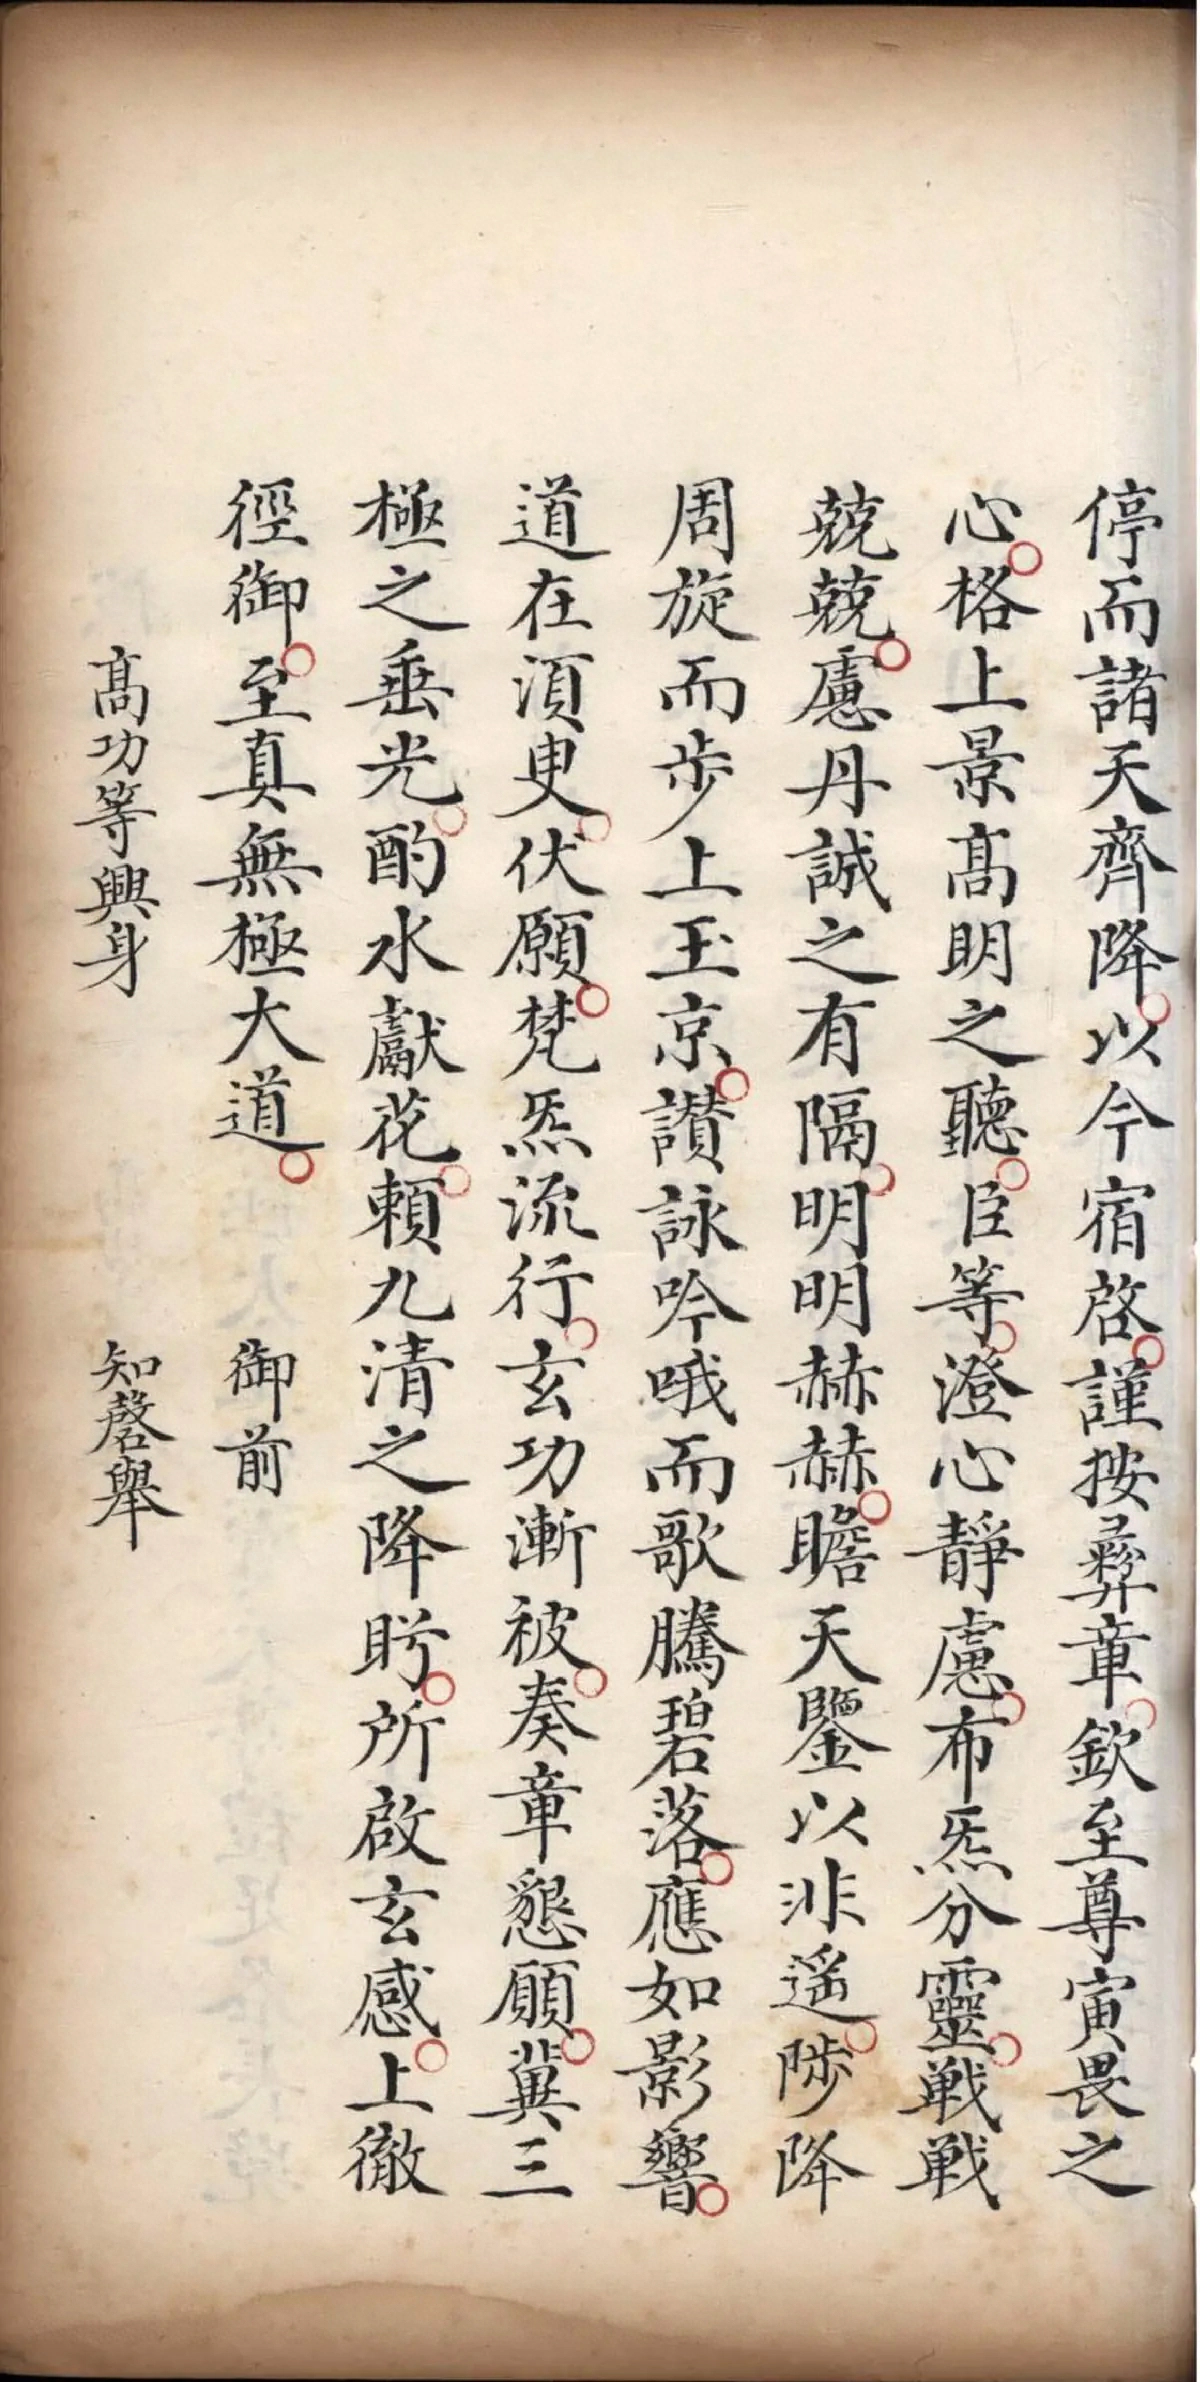 停而諸天齊降以今宿啓謹按彛章欽至尊寅畏之
心格上景髙明之聽臣等澄心靜慮布炁分靈戰戰
兢兢慮丹誠之有隔明明赫赫瞻天鑒以非遥陟降
周旋而步上玉京讃詠吟哦而歌騰碧落應如影響
道在湏臾伏願梵炁流行玄功漸被奏章懇願冀三
極之垂光酌水獻花頼九清之降眄所啟玄感上徹
徑御至真無極大道　御前
髙功等興身　知磬舉